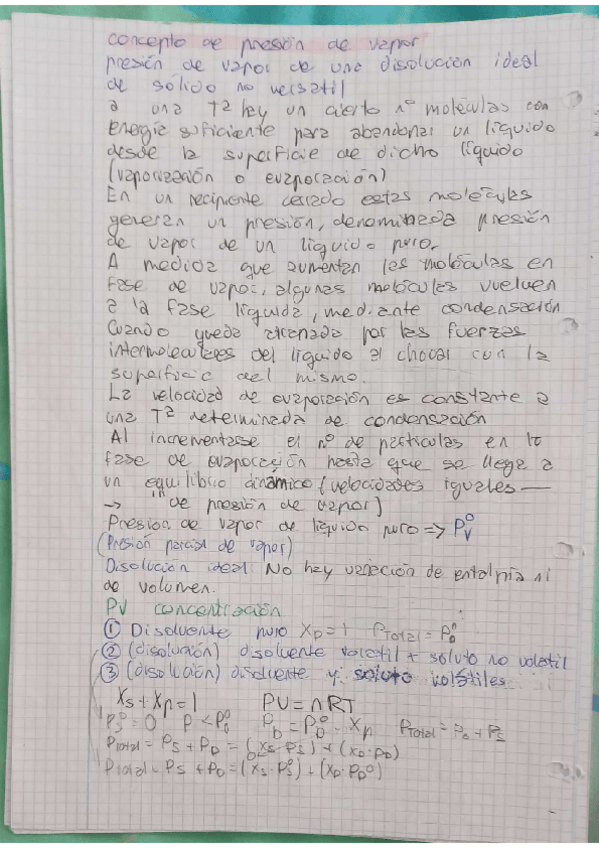 concepto de presión de vapor
presión de vapor de una disolución ideal
de sólido no versatil
a una Tª hay un cierto nº moléculas con
energía suficiente para abandonar un líquido
desde la superficie de dicho líquido
(vaporización o evaporación)
En un recipiente cerrado estas moléculas
generan un presión, denominada presión
de vapor de un líquido puro.
A medida que aumentan las moléculas en
fase de vapor, algunas moléculas vuelven
a la fase líquida, mediante condensación
Cuando queda atrapada por las fuerzas
intermoleculares del líquido al chocar con la
superficie del mismo.
La velocidad de evaporación es constante a
una Tª determinada de condensación
Al incrementarse el nº de partículas en la
fase de evaporación hasta que se llega a
un equilibrio dinámico (velocidades iguales —
→ de presión de vapor)
Presión de vapor de líquido puro => Pᵥ⁰
(Presión parcial de vapor)
Disolución ideal No hay variación de entalpía ni
de volumen.
PV concentración
① Disolvente puro X_D = 1 P_Total = P_D⁰
② (disolución) disolvente volatil + soluto no volatil
③ (disolución) disolvente y soluto volátiles
X_s + X_D = 1 PV = nRT
P_s⁰ = 0 P < P_D⁰ P_D = P_D⁰ · X_D P_Total = P_D + P_s
P_total = P_s + P_D = (X_s · P_s) + (X_D · P_D)
P_total = P_s + P_D = (X_s · P_s⁰) + (X_D · P_D⁰)